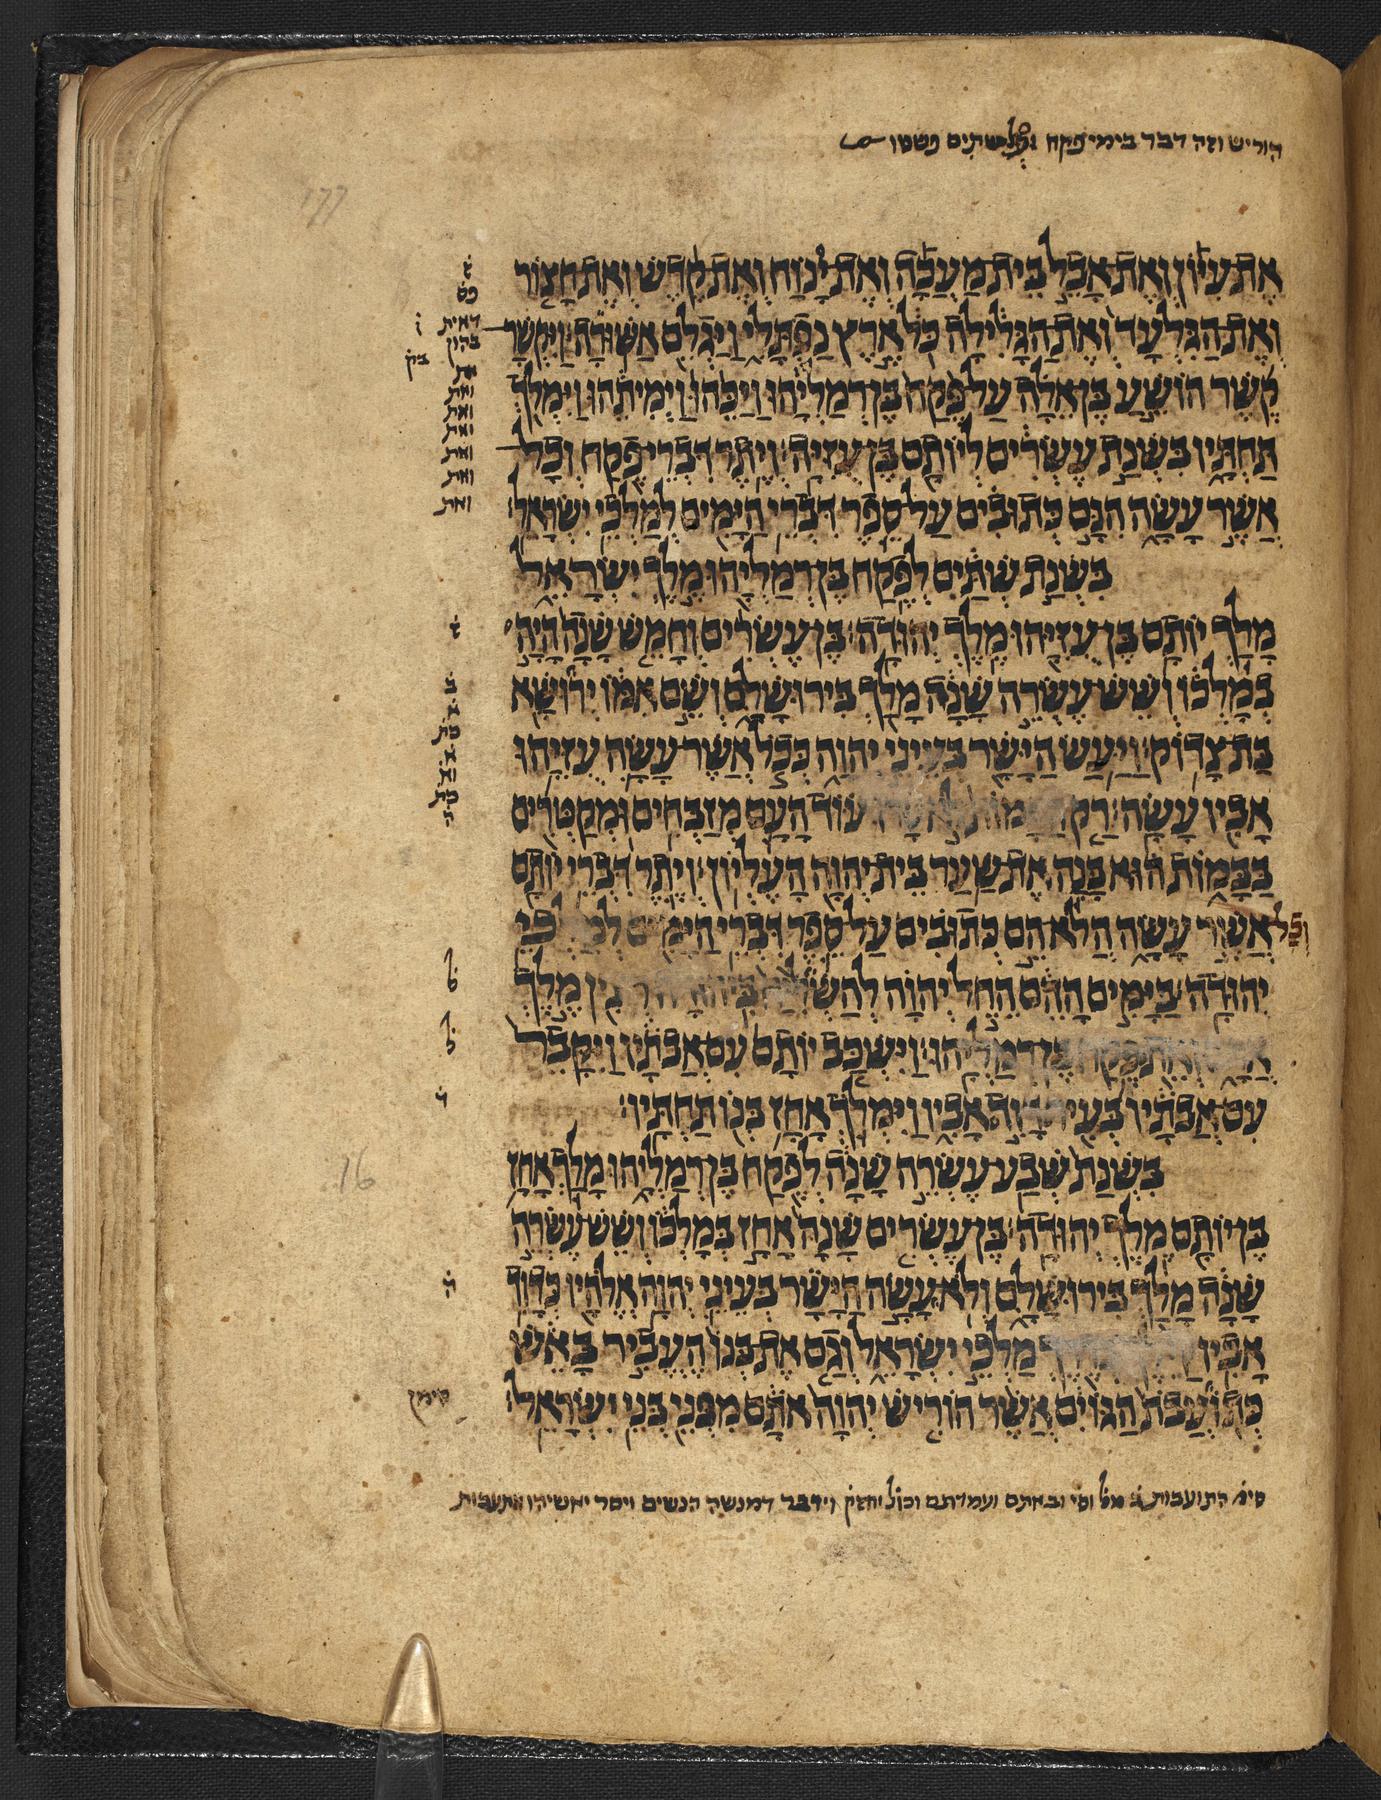 הוריש וזה דבר בימי פקח ופלשתים פשטו
177
אֶת עִיּוֹן וְאֶת אָבֵל בֵּית מַעֲכָה וְאֶת יָנוֹחַ וְאֶת קֶדֶשׁ וְאֶת חָצוֹר
וְאֶת הַגִּלְעָד וְאֶת הַגָּלִילָה כֹּל אֶרֶץ נַפְתָּלִי וַיַּגְלֵם אַשּׁוּרָה׃ וַיִּקְשָׁר
קֶשֶׁר הוֹשֵׁעַ בֶּן אֵלָה עַל פֶּקַח בֶּן רְמַלְיָהוּ וַיַּכֵּהוּ וַיְמִיתֵהוּ וַיִּמְלֹךְ
תַּחְתָּיו בִּשְׁנַת עֶשְׂרִים לְיוֹתָם בֶּן עֻזִּיָּה׃ וְיֶתֶר דִּבְרֵי פֶקַח וְכָל
אֲשֶׁר עָשָׂה הִנָּם כְּתוּבִים עַל סֵפֶר דִּבְרֵי הַיָּמִים לְמַלְכֵי יִשְׂרָאֵל׃
בִּשְׁנַת שְׁתַּיִם לְפֶקַח בֶּן רְמַלְיָהוּ מֶלֶךְ יִשְׂרָאֵל
מָלַךְ יוֹתָם בֶּן עֻזִּיָּהוּ מֶלֶךְ יְהוּדָה׃ בֶּן עֶשְׂרִים וְחָמֵשׁ שָׁנָה הָיָה
בְמָלְכוֹ וְשֵׁשׁ עֶשְׂרֵה שָׁנָה מָלַךְ בִּירוּשָׁלִָם וְשֵׁם אִמּוֹ יְרוּשָׁא
בַּת צָדוֹק׃ וַיַּעַשׂ הַיָּשָׁר בְּעֵינֵי יְהוָה כְּכֹל אֲשֶׁר עָשָׂה עֻזִּיָּהוּ
אָבִיו עָשָׂה׃ רַק עוֹד הָעָם מְזַבְּחִים וּמְקַטְּרִים
בַּבָּמוֹת הוּא בָּנָה אֶת שַׁעַר בֵּית יְהוָה הָעֶלְיוֹן׃ וְיֶתֶר דִּבְרֵי יוֹתָם
וְכָל אֲשֶׁר עָשָׂה הֲלֹא הֵם כְּתוּבִים עַל סֵפֶר דִּבְרֵי הַיָּמִים לְמַלְכֵי
יְהוּדָה׃ בַּיָּמִים הָהֵם הֵחֵל יְהוָה לְהַשְׁלִיחַ בִּיהוּדָה רְצִין מֶלֶךְ
אֲרָם וְאֵת פֶּקַח בֶּן רְמַלְיָהוּ׃ וַיִּשְׁכַּב יוֹתָם עִם אֲבֹתָיו וַיִּקָּבֵר
עִם אֲבֹתָיו בְּעִיר דָּוִד אָבִיו וַיִּמְלֹךְ אָחָז בְּנוֹ תַּחְתָּיו׃
16
בִּשְׁנַת שְׁבַע עֶשְׂרֵה שָׁנָה לְפֶקַח בֶּן רְמַלְיָהוּ מָלַךְ אָחָז
בֶּן יוֹתָם מֶלֶךְ יְהוּדָה׃ בֶּן עֶשְׂרִים שָׁנָה אָחָז בְּמָלְכוֹ וְשֵׁשׁ עֶשְׂרֵה
שָׁנָה מָלַךְ בִּירוּשָׁלִָם וְלֹא עָשָׂה הַיָּשָׁר בְּעֵינֵי יְהוָה אֱלֹהָיו כְּדָוִד
אָבִיו׃ מַלְכֵי יִשְׂרָאֵל וְגַם אֶת בְּנוֹ הֶעֱבִיר בָּאֵשׁ
כְּתֹעֲבֹת הַגּוֹיִם אֲשֶׁר הוֹרִישׁ יְהוָה אֹתָם מִפְּנֵי בְּנֵי יִשְׂרָאֵל׃
סימן
סימ התועבות ובאתם ועמדתם וידבר דמנשה הנשים ויסר יאשיהו